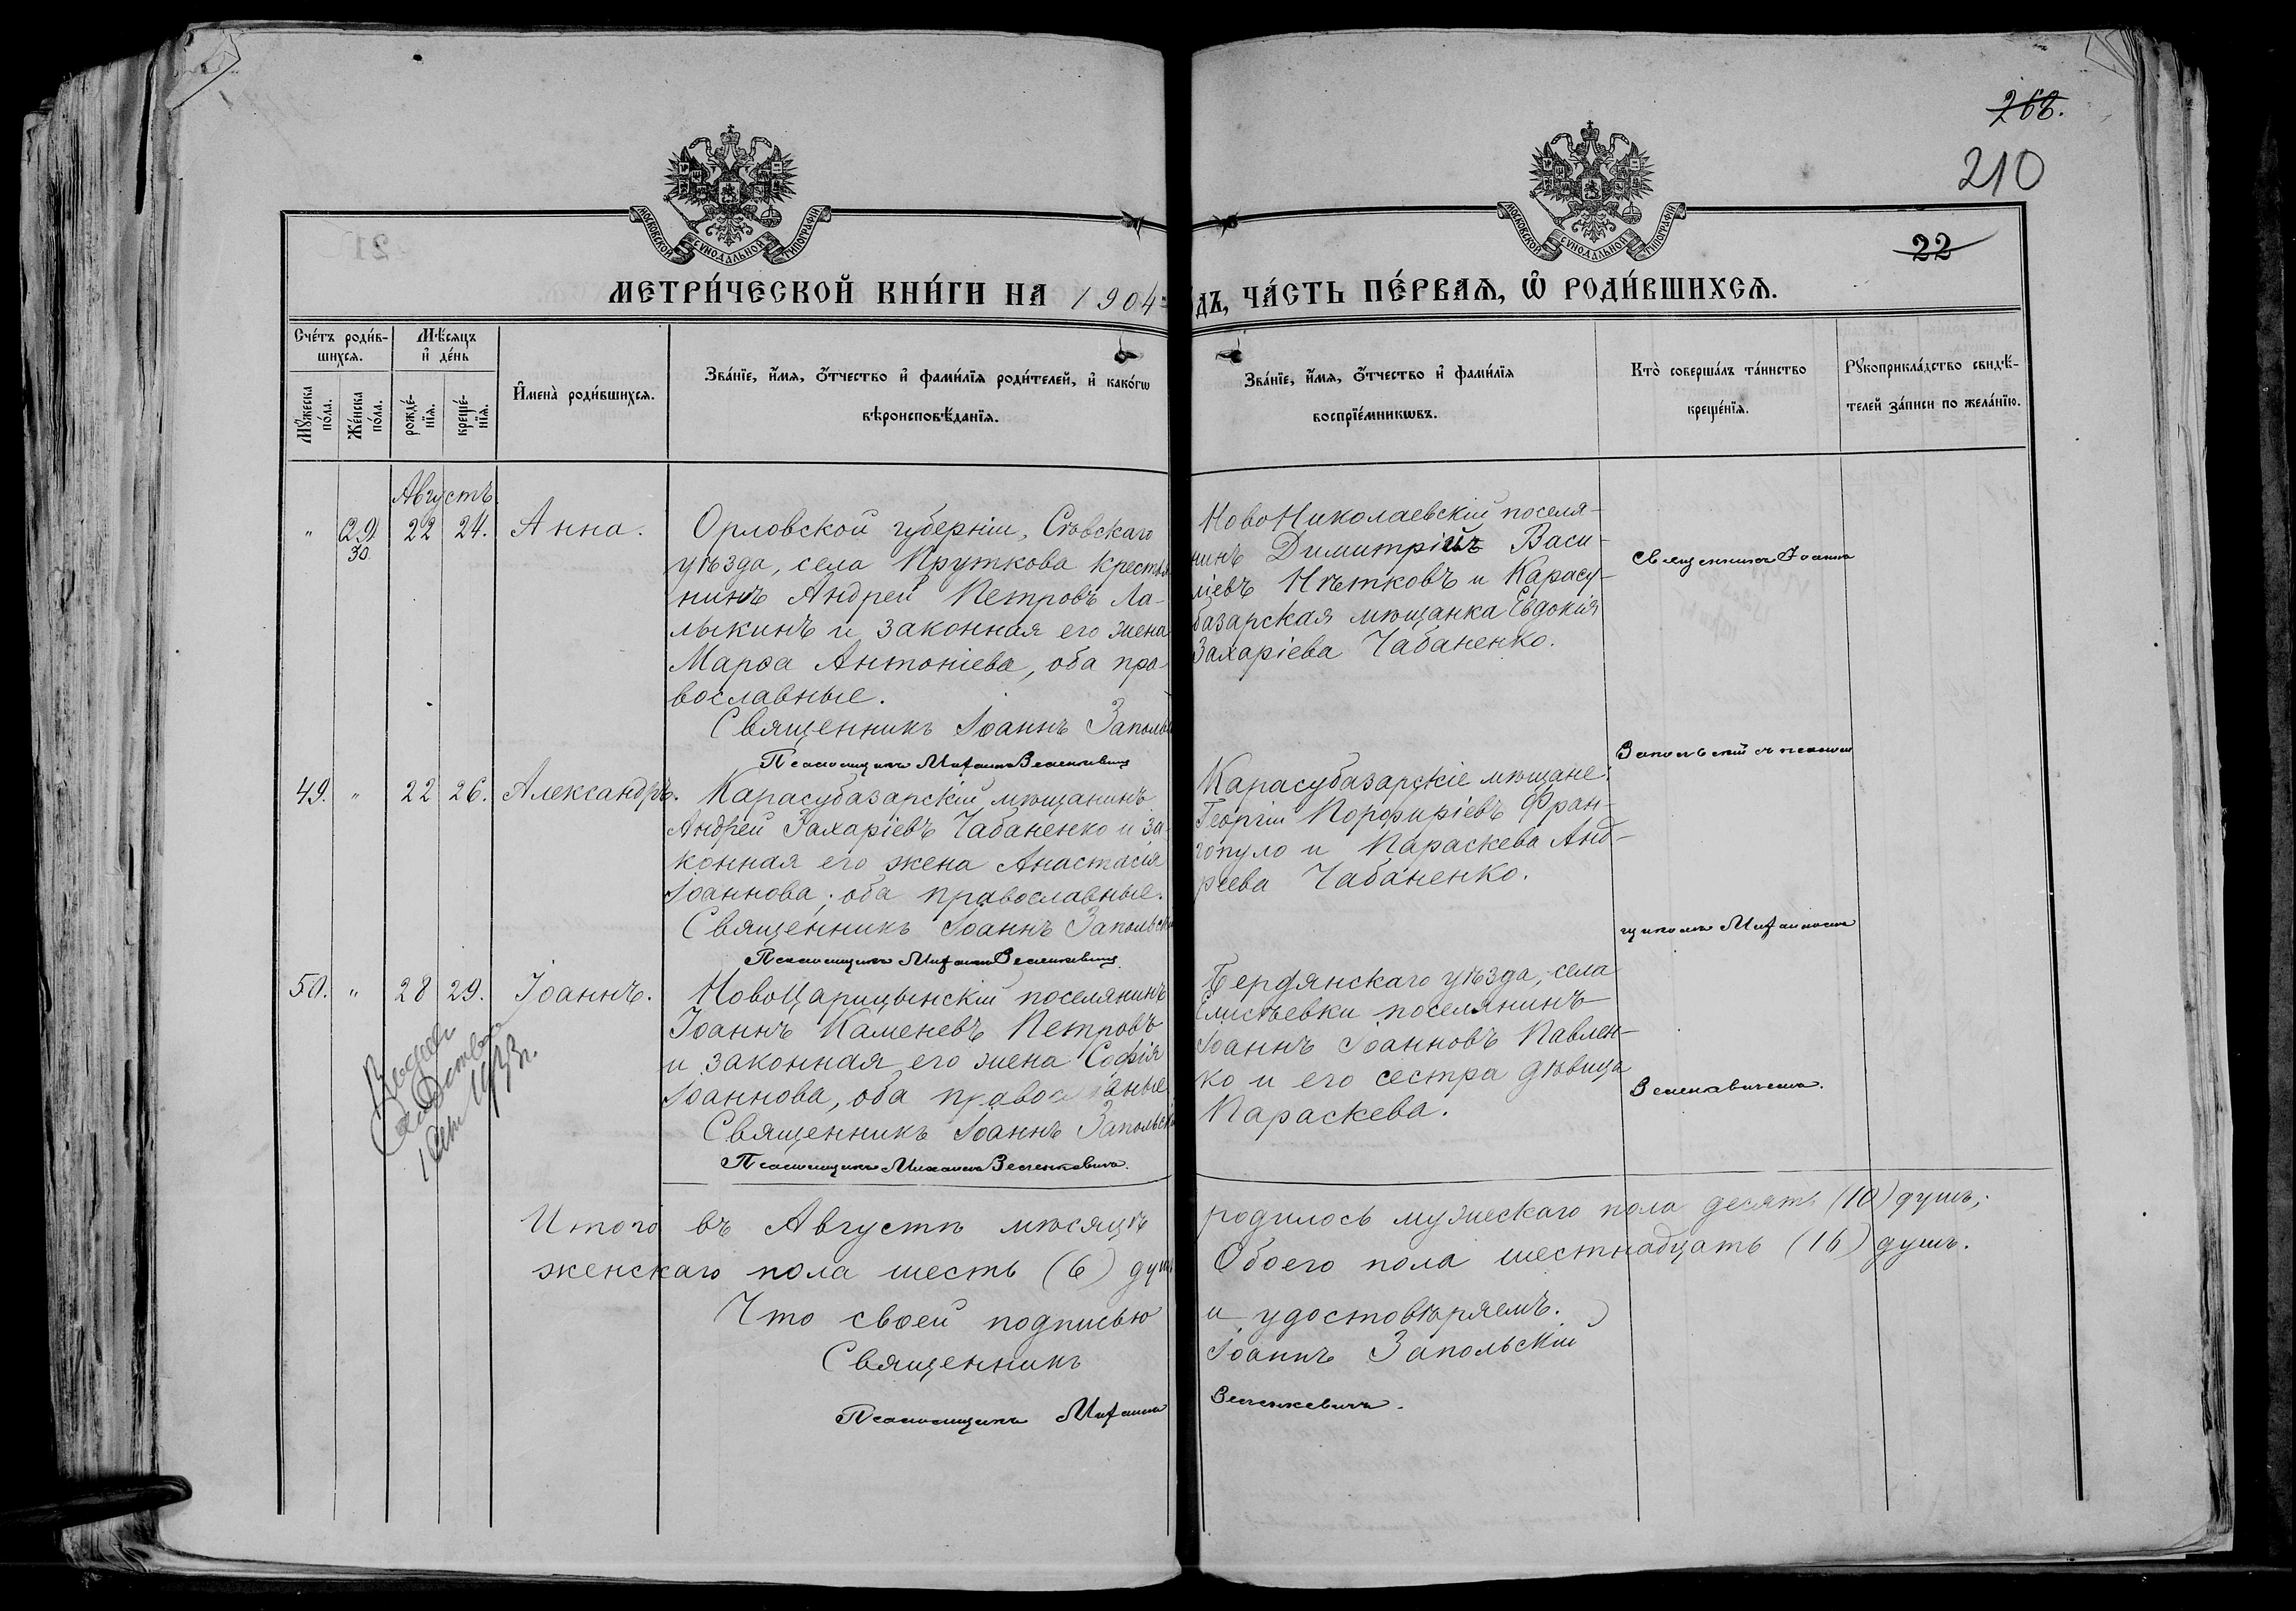 268.
210
22
МОСКОВСКОЙ СѴНОДАЛЬНОЙ ТИПОГРАФІИ
МОСКОВСКОЙ СѴНОДАЛЬНОЙ ТИПОГРАФІИ
МЕТРИ́ЧЕСКОЙ КНИ́ГИ НА 1904
ДЪ, ЧА́СТЬ ПЕ́РВАѦ, Ѡ РОДИ́ВШИХСѦ.
Сче́тъ роди́в-
шихсѧ.
Мѣ́сѧцъ
и҆ де́нь
Мꙋ́жеска
по́ла.
Же́нска
по́ла.
рожде́-
нїѧ.
креще́-
нїѧ.
И҆мена̀ роди́вшихсѧ.
Зва́нїе, и҆́мѧ, ѻ҆́тчество и҆ фами́лїѧ роди́телей, и҆ како́гѡ
вѣроисповѣ́данїѧ.
Зва́нїе, и҆́мѧ, ѻ҆́тчество и҆ фами́лїѧ
воспрїе́мникѡвъ.
Кто̀ соверша́лъ та́инство
креще́нїѧ.
Рꙋкоприкла́дство свидѣ́-
телей за́писи по жела́нїю.
Августъ
" 29 22 24. Анна.
30
Орловской губерніи, Сѣвскаго
уѣзда, села Пруткова крестья
нинъ Андрей Петровъ Ла-
лыкинъ и законная его жена
Марѳа Антоніева, оба пра
вославные.
Священникъ Іоаннъ Заполь
Псаломщикъ Михаилъ
НовоНиколаевскій поселя-
нинъ Димитрій Васи-
ліевъ Нѣтковъ и Карасу-
базарская мѣщанка Евдокія
Захаріева Чабаненко.
Священникъ Іоаннъ
Запольскій съ псалом
щикомъ Михаиломъ
49. " 22 26. Александръ.
Карасубазарскій мѣщанинъ
Андрей Захаріевъ Чабаненко и за-
конная его жена Анастасія
Іоаннова, оба православные.
Священникъ Іоаннъ Запольск
Псаломщикъ Михаилъ
Карасубазарскіе мѣщане:
Георгій Порфиріевъ Фран-
гопуло и Параскева Анд-
реева Чабаненко.
50. " 28 29. Іоаннъ.
НовоЦарицынскій поселянинъ
Іоаннъ Каменевъ Петровъ
и законная его жена Софія
Іоаннова, оба правос аные
Священникъ Іоаннъ Запольск
Псаломщикъ Михаилъ
Бердянскаго уѣзда, села
Елисѣевки поселянинъ
Іоаннъ Іоанновъ Павлен-
ко и его сестра дѣвица
Параскева.
Итого въ Августѣ мѣсяцѣ родилось мужескаго пола десять (10) душъ;
женскаго пола шесть (6) душъ Обоего пола шестнадцать (16) душъ.
Что своей подписью и удостовѣряемъ.
Священникъ Іоаннъ Запольскій
Псаломщикъ Михаилъ